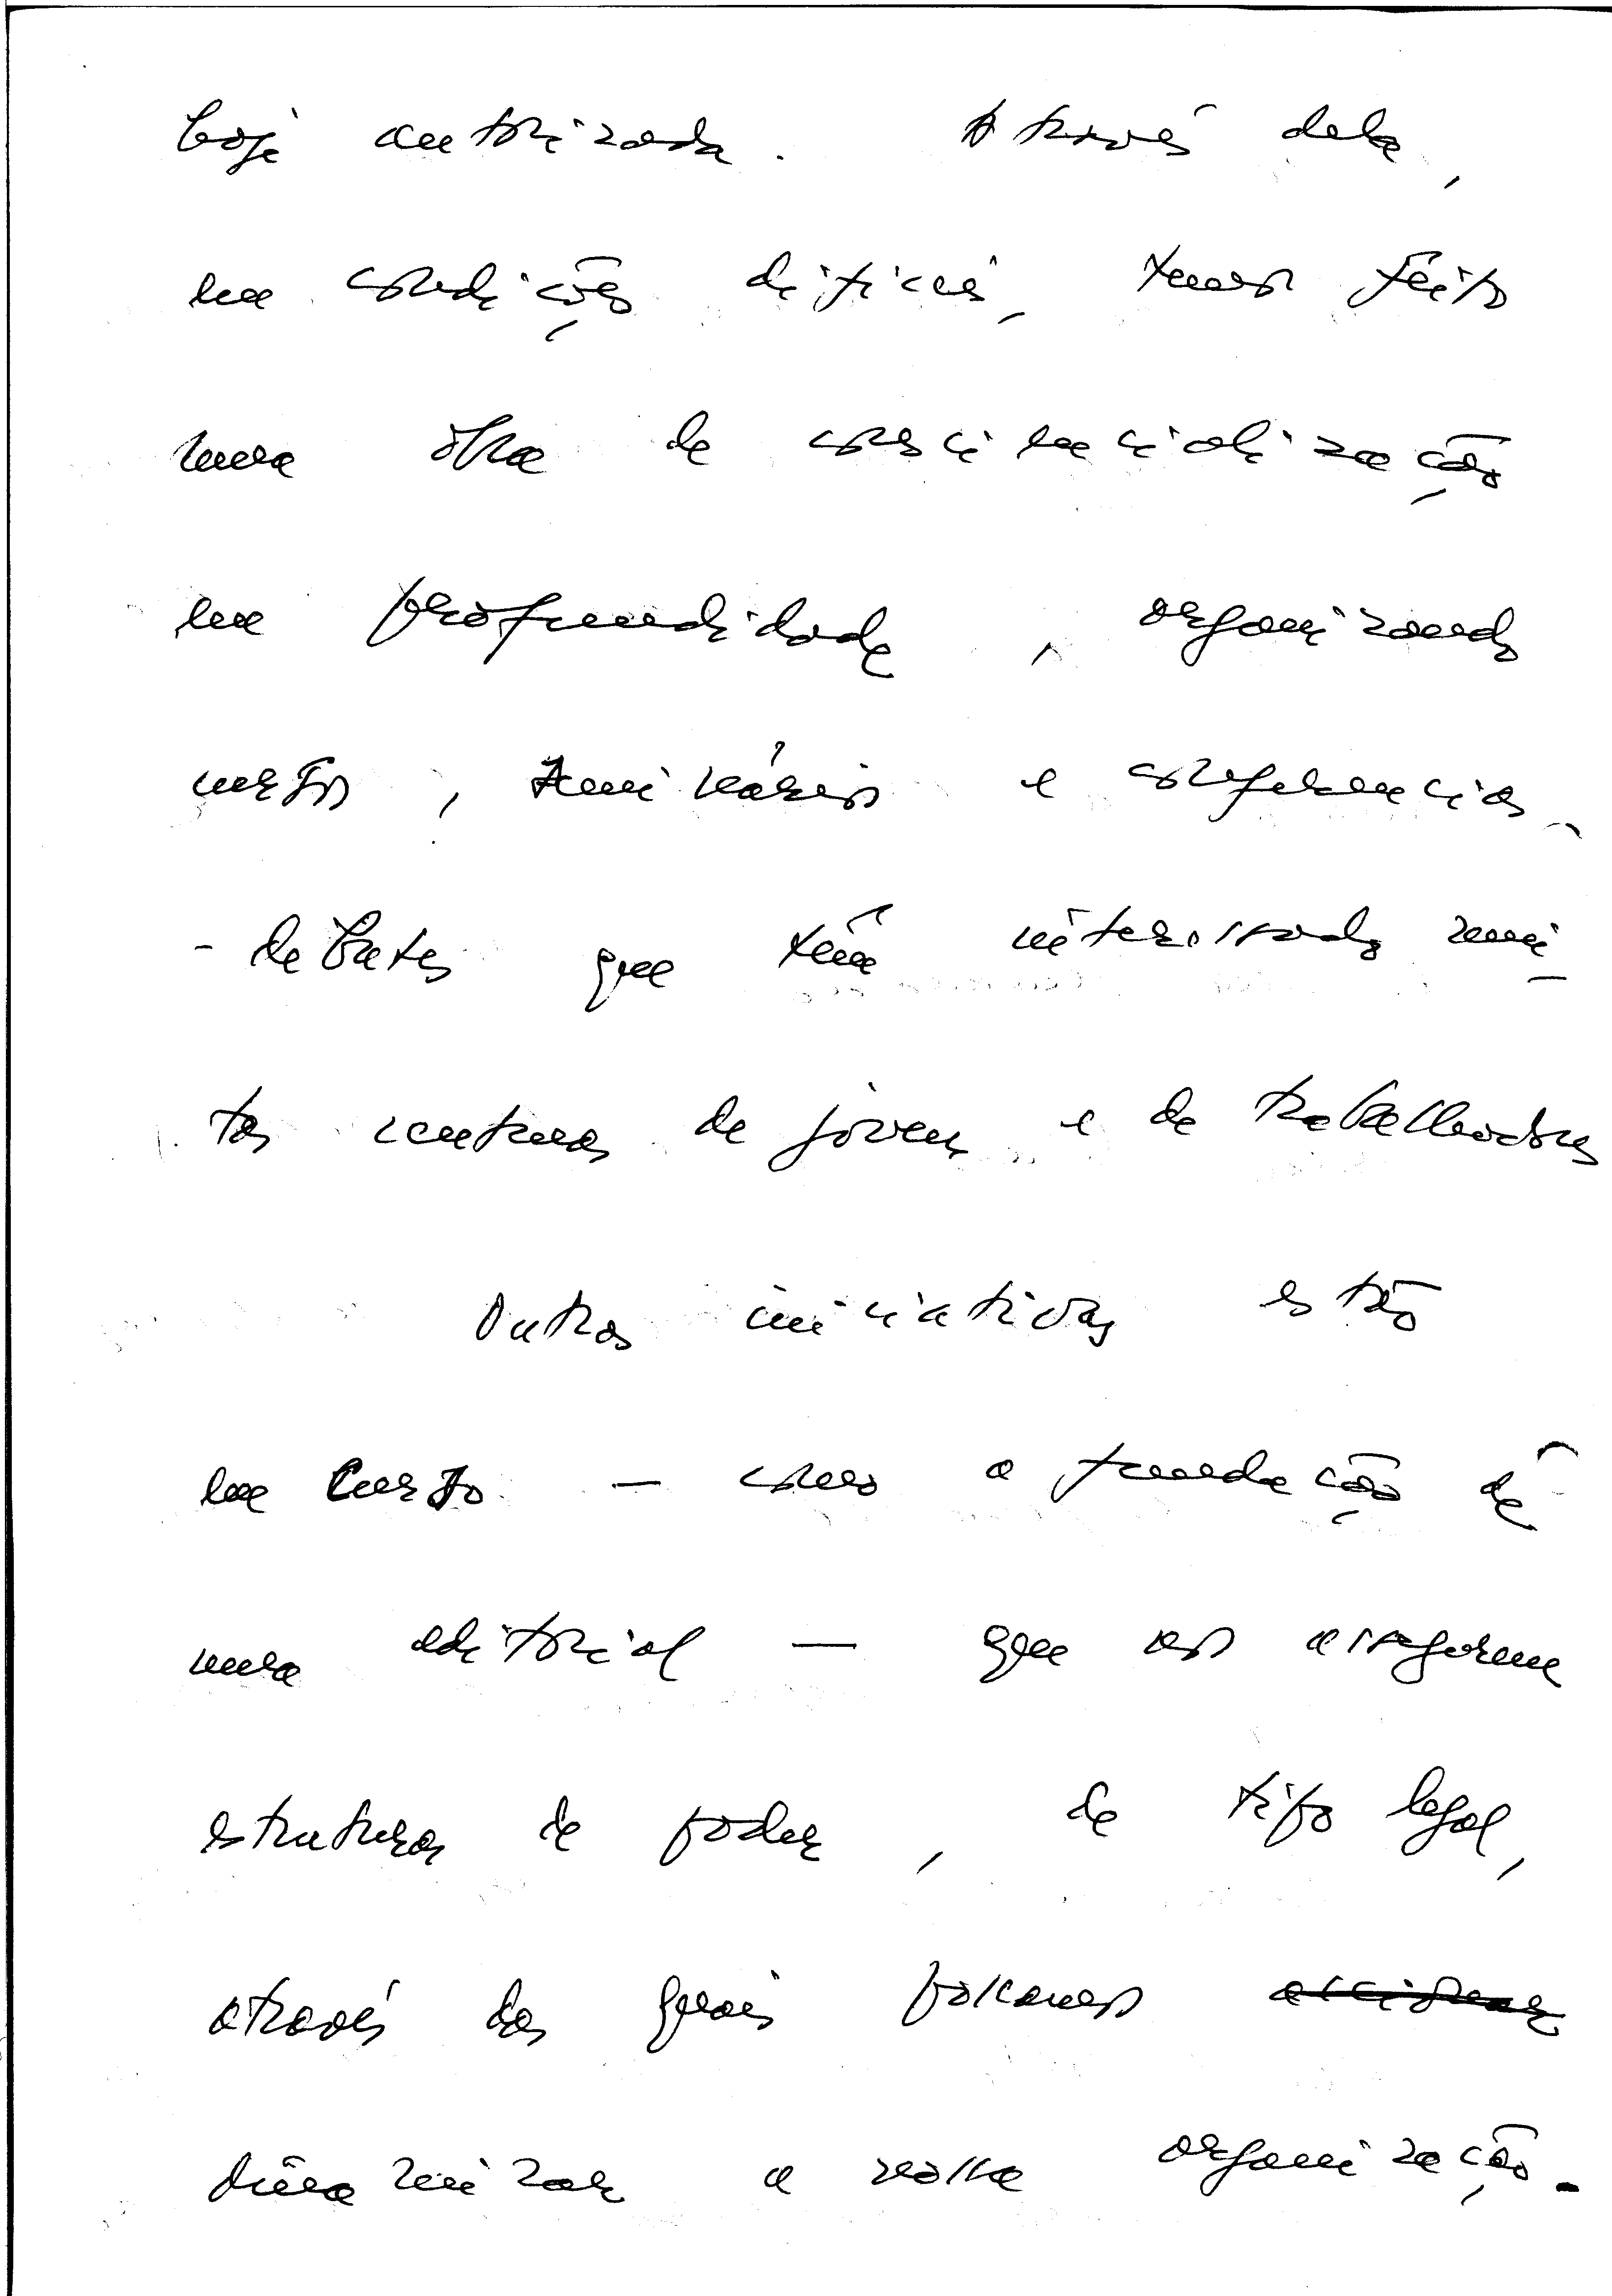 hoje autorizada. Através dela,
em condições difíceis, temos feito
uma obra de consciencialização
em profundidade, organizando
cursos, seminários e conferências-
-debates que têm interessado mui-
tas centenas de jovens e de trabalhadores
Outras iniciativas estão
em curso — como a fundação de
uma editorial — que nos assegurem
estruturas de poder, de tipo legal,
através das quais possamos
dinamizar a nossa organização.